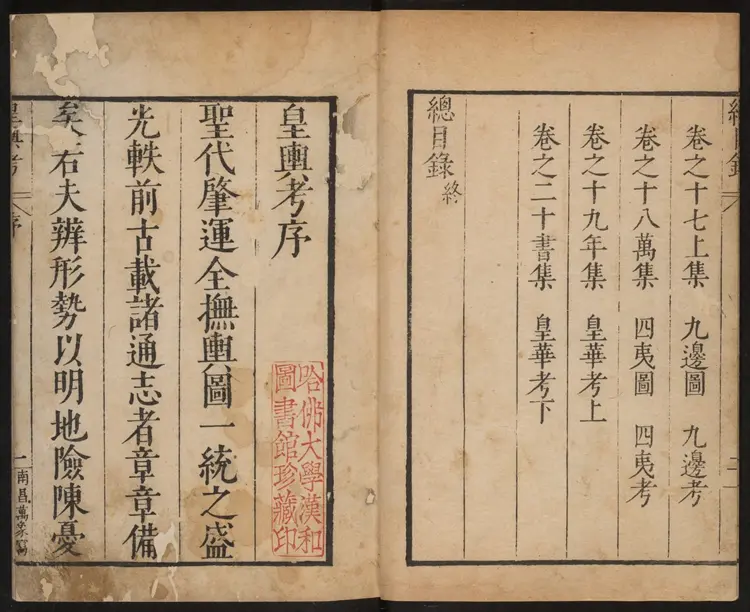 卷之十七上集 九邊圖 九邊考
卷之十八萬集 四夷圖 四夷考
卷之十九年集 皇華考上
卷之二十書集 皇華考下
總目錄 終
皇輿考序
聖代肇運全撫輿圖一統之盛
光軼前古載諸通志者章章備
矣 右夫辨形勢以明地險陳憂
哈佛大學漢和
圖書館珍藏印
序
一
南昌萬